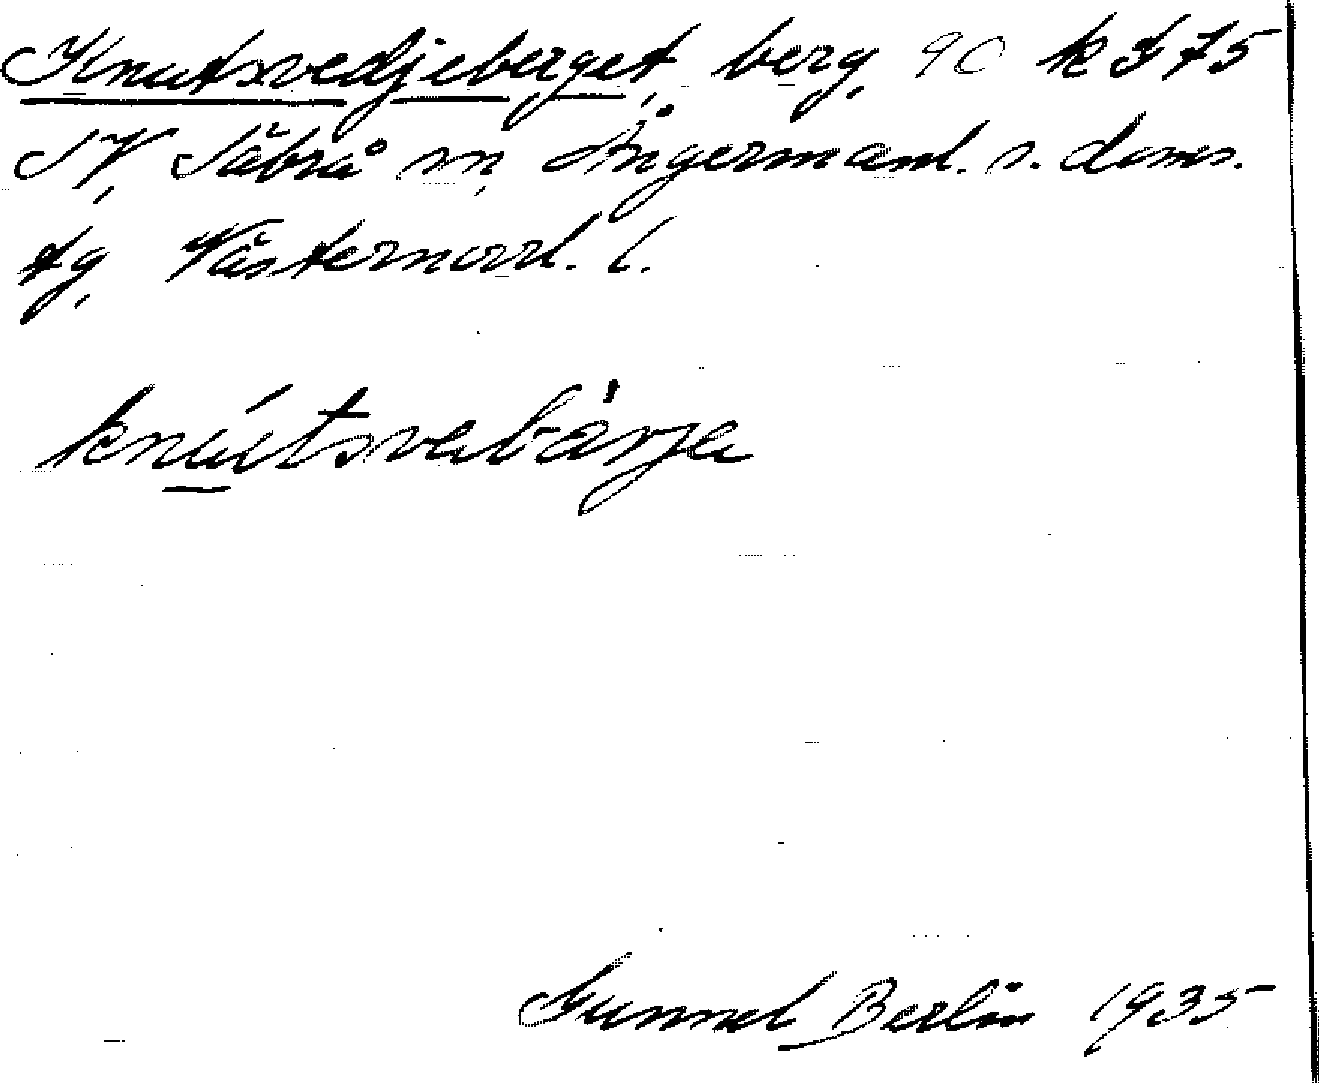 Knutsvedjeberget, berg, 90 k I 75
SV, Säbrå sn, Ångermanl. s. doms.
tg, Västernorrl. l.
knútsvebàrja
Gunnel Berlin 1935